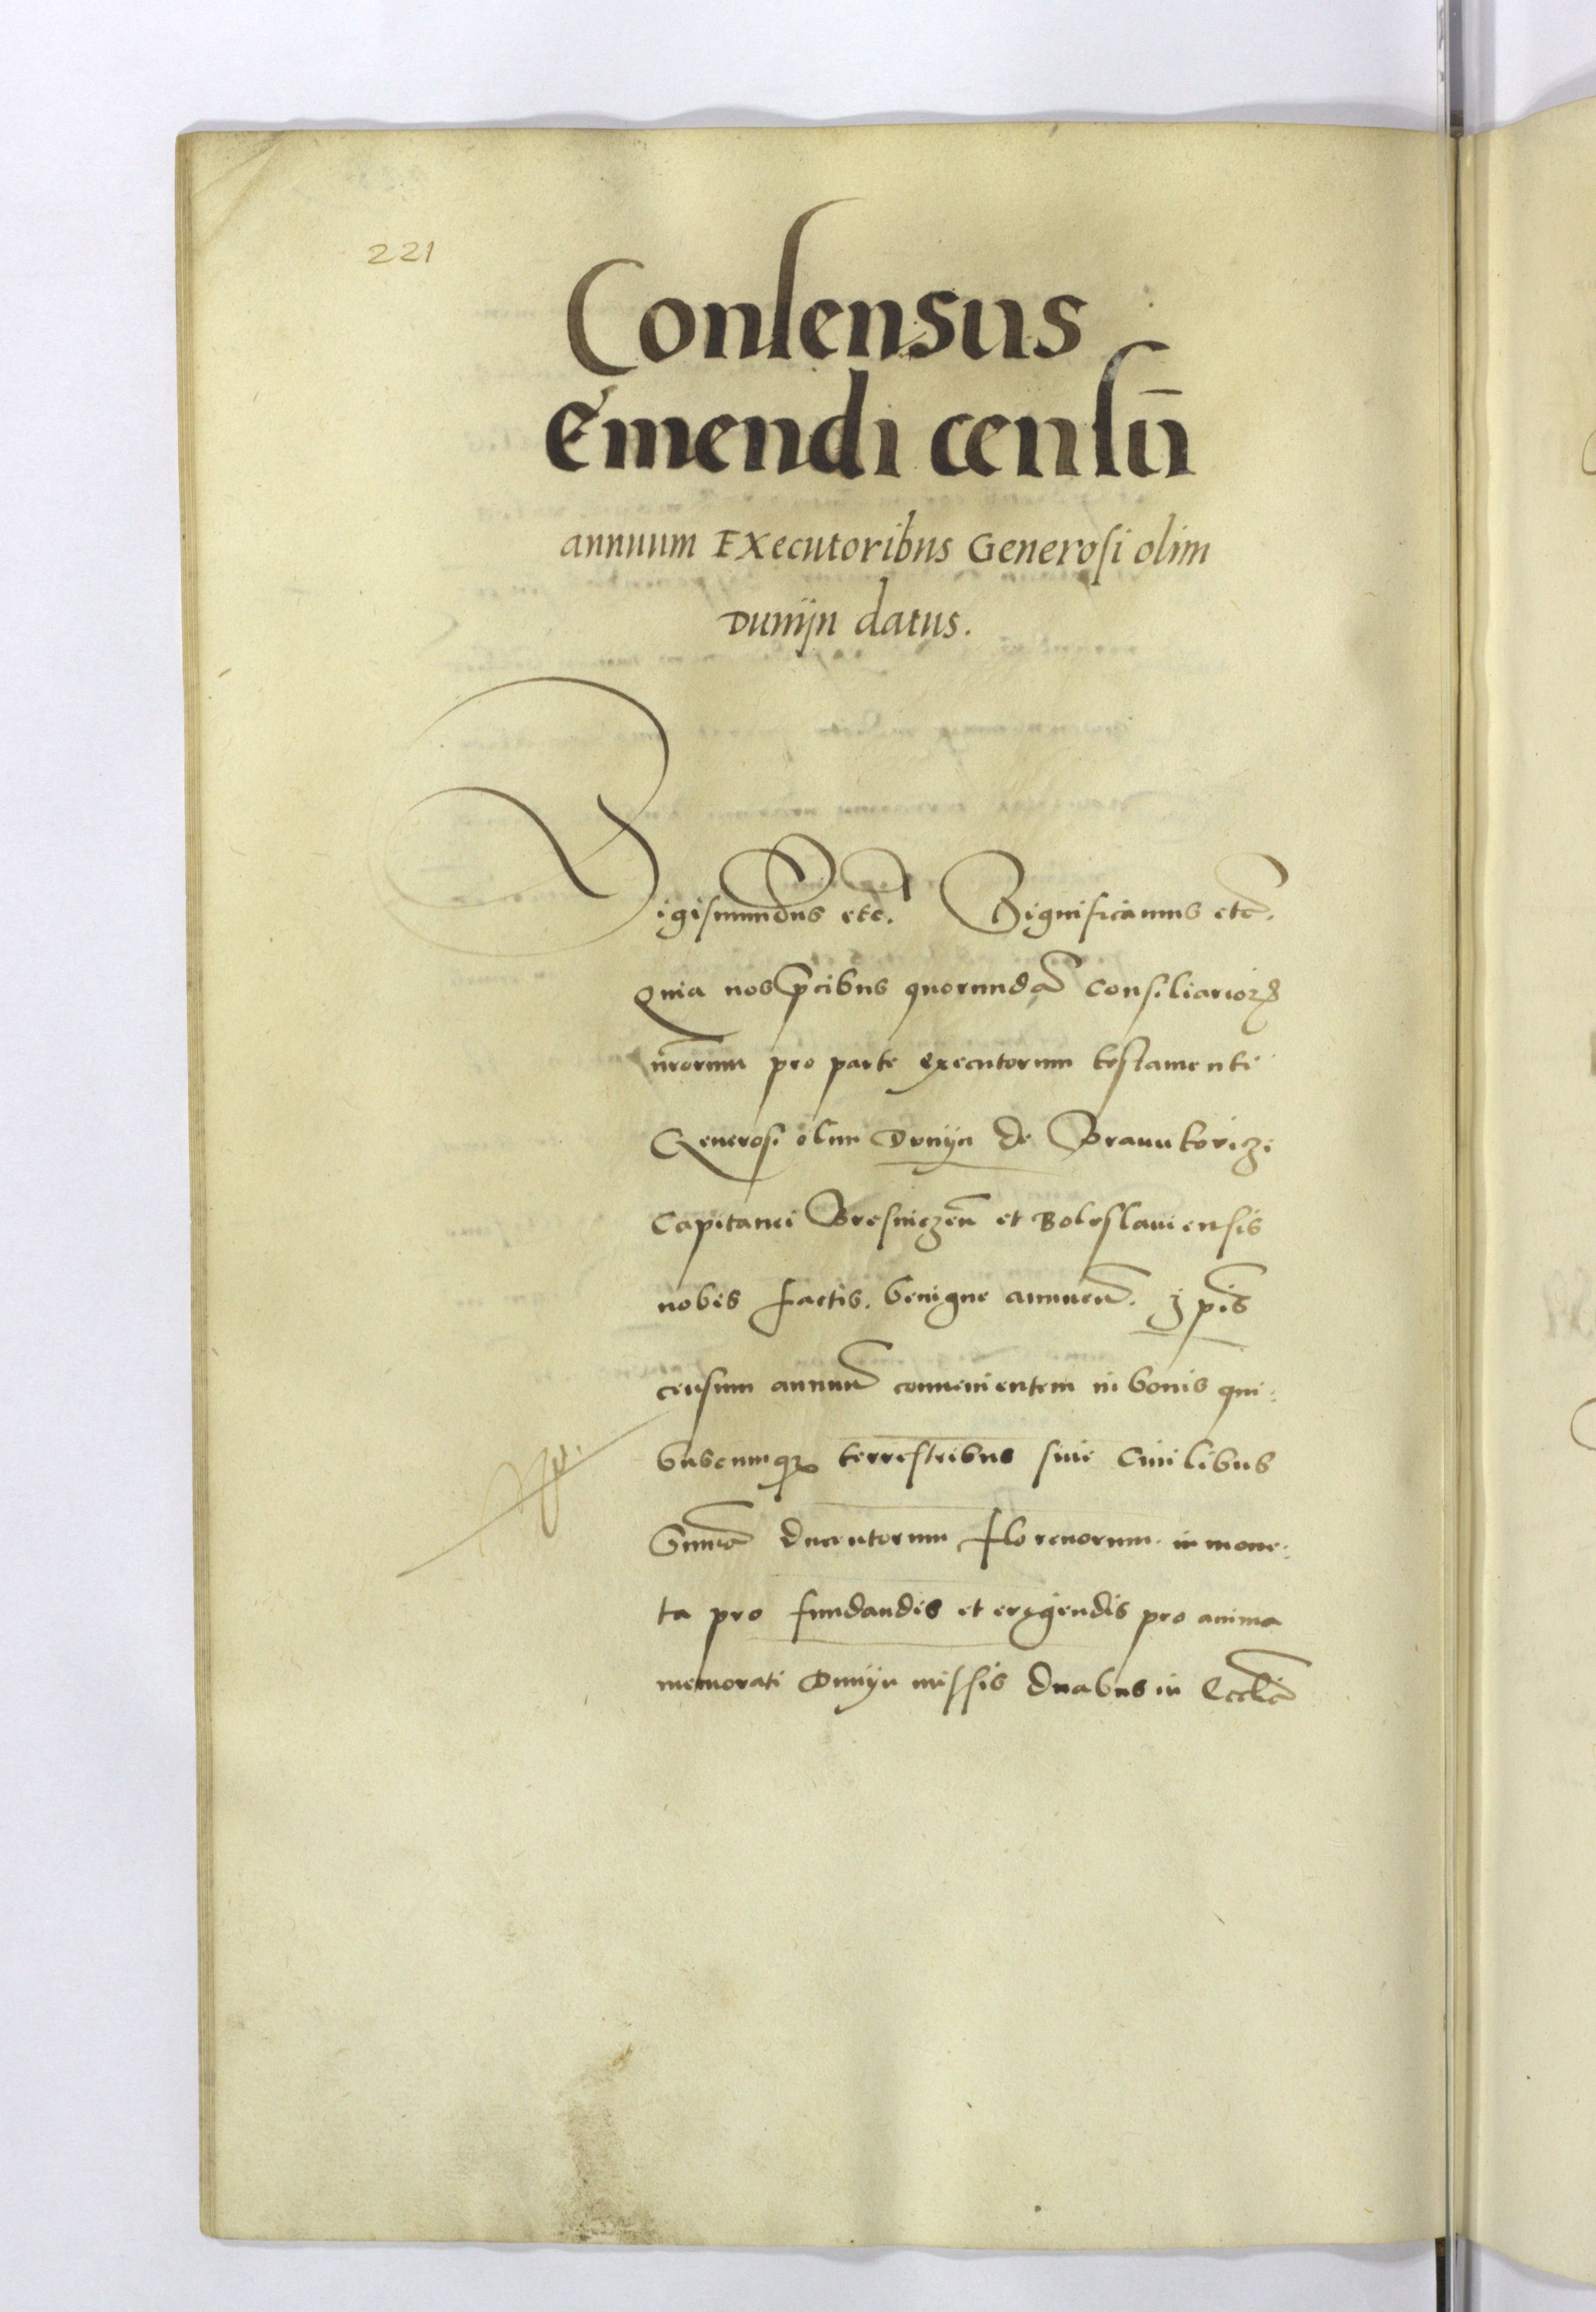 221
Consensus
Emendi censū
annuum Executoribus Generosi olim
Dunijn datus.
Sigismundus etc. Significamus etc.
Quia nos p̄cibus quorundā Consiliarioꝝ
nr̄orum pro parte executorum testamenti
Generosi olim Dunijn de
Capitanei Bresniczen̄ et Boleslauiensis
nobis factis. benigne annuen̄.
censum annuū conuenientem in bonis qui:
buscumqꝫ terrestribus siue Ciuilibus
Sum̄a ducentorum florenorum in mone:
ta pro fundandis et erigendis pro anima
memorati Dunijn missis duabus in Eccl̄ia